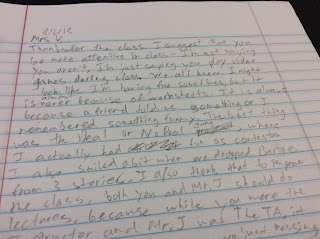 2/6/12
Mrs. V
Thanks for the class. I suggest that you
be more attentive in class. I'm not saying
you aren't, I'm just saying you play video
games during class. We all know. I might
look like I'm having fun sometimes, but it
is never because of worksheets. It is always
almost
because a friend told me something or I
remembered something funny. The best thing
was the Deal or No Deal game where
I actually had fun
I also smiled a bit when we dropped
from 3 stories. I also think that to improve
the class, both you and Mr. J should do
lectures, because while you were the
and Mr. J was the TA, it
just messing